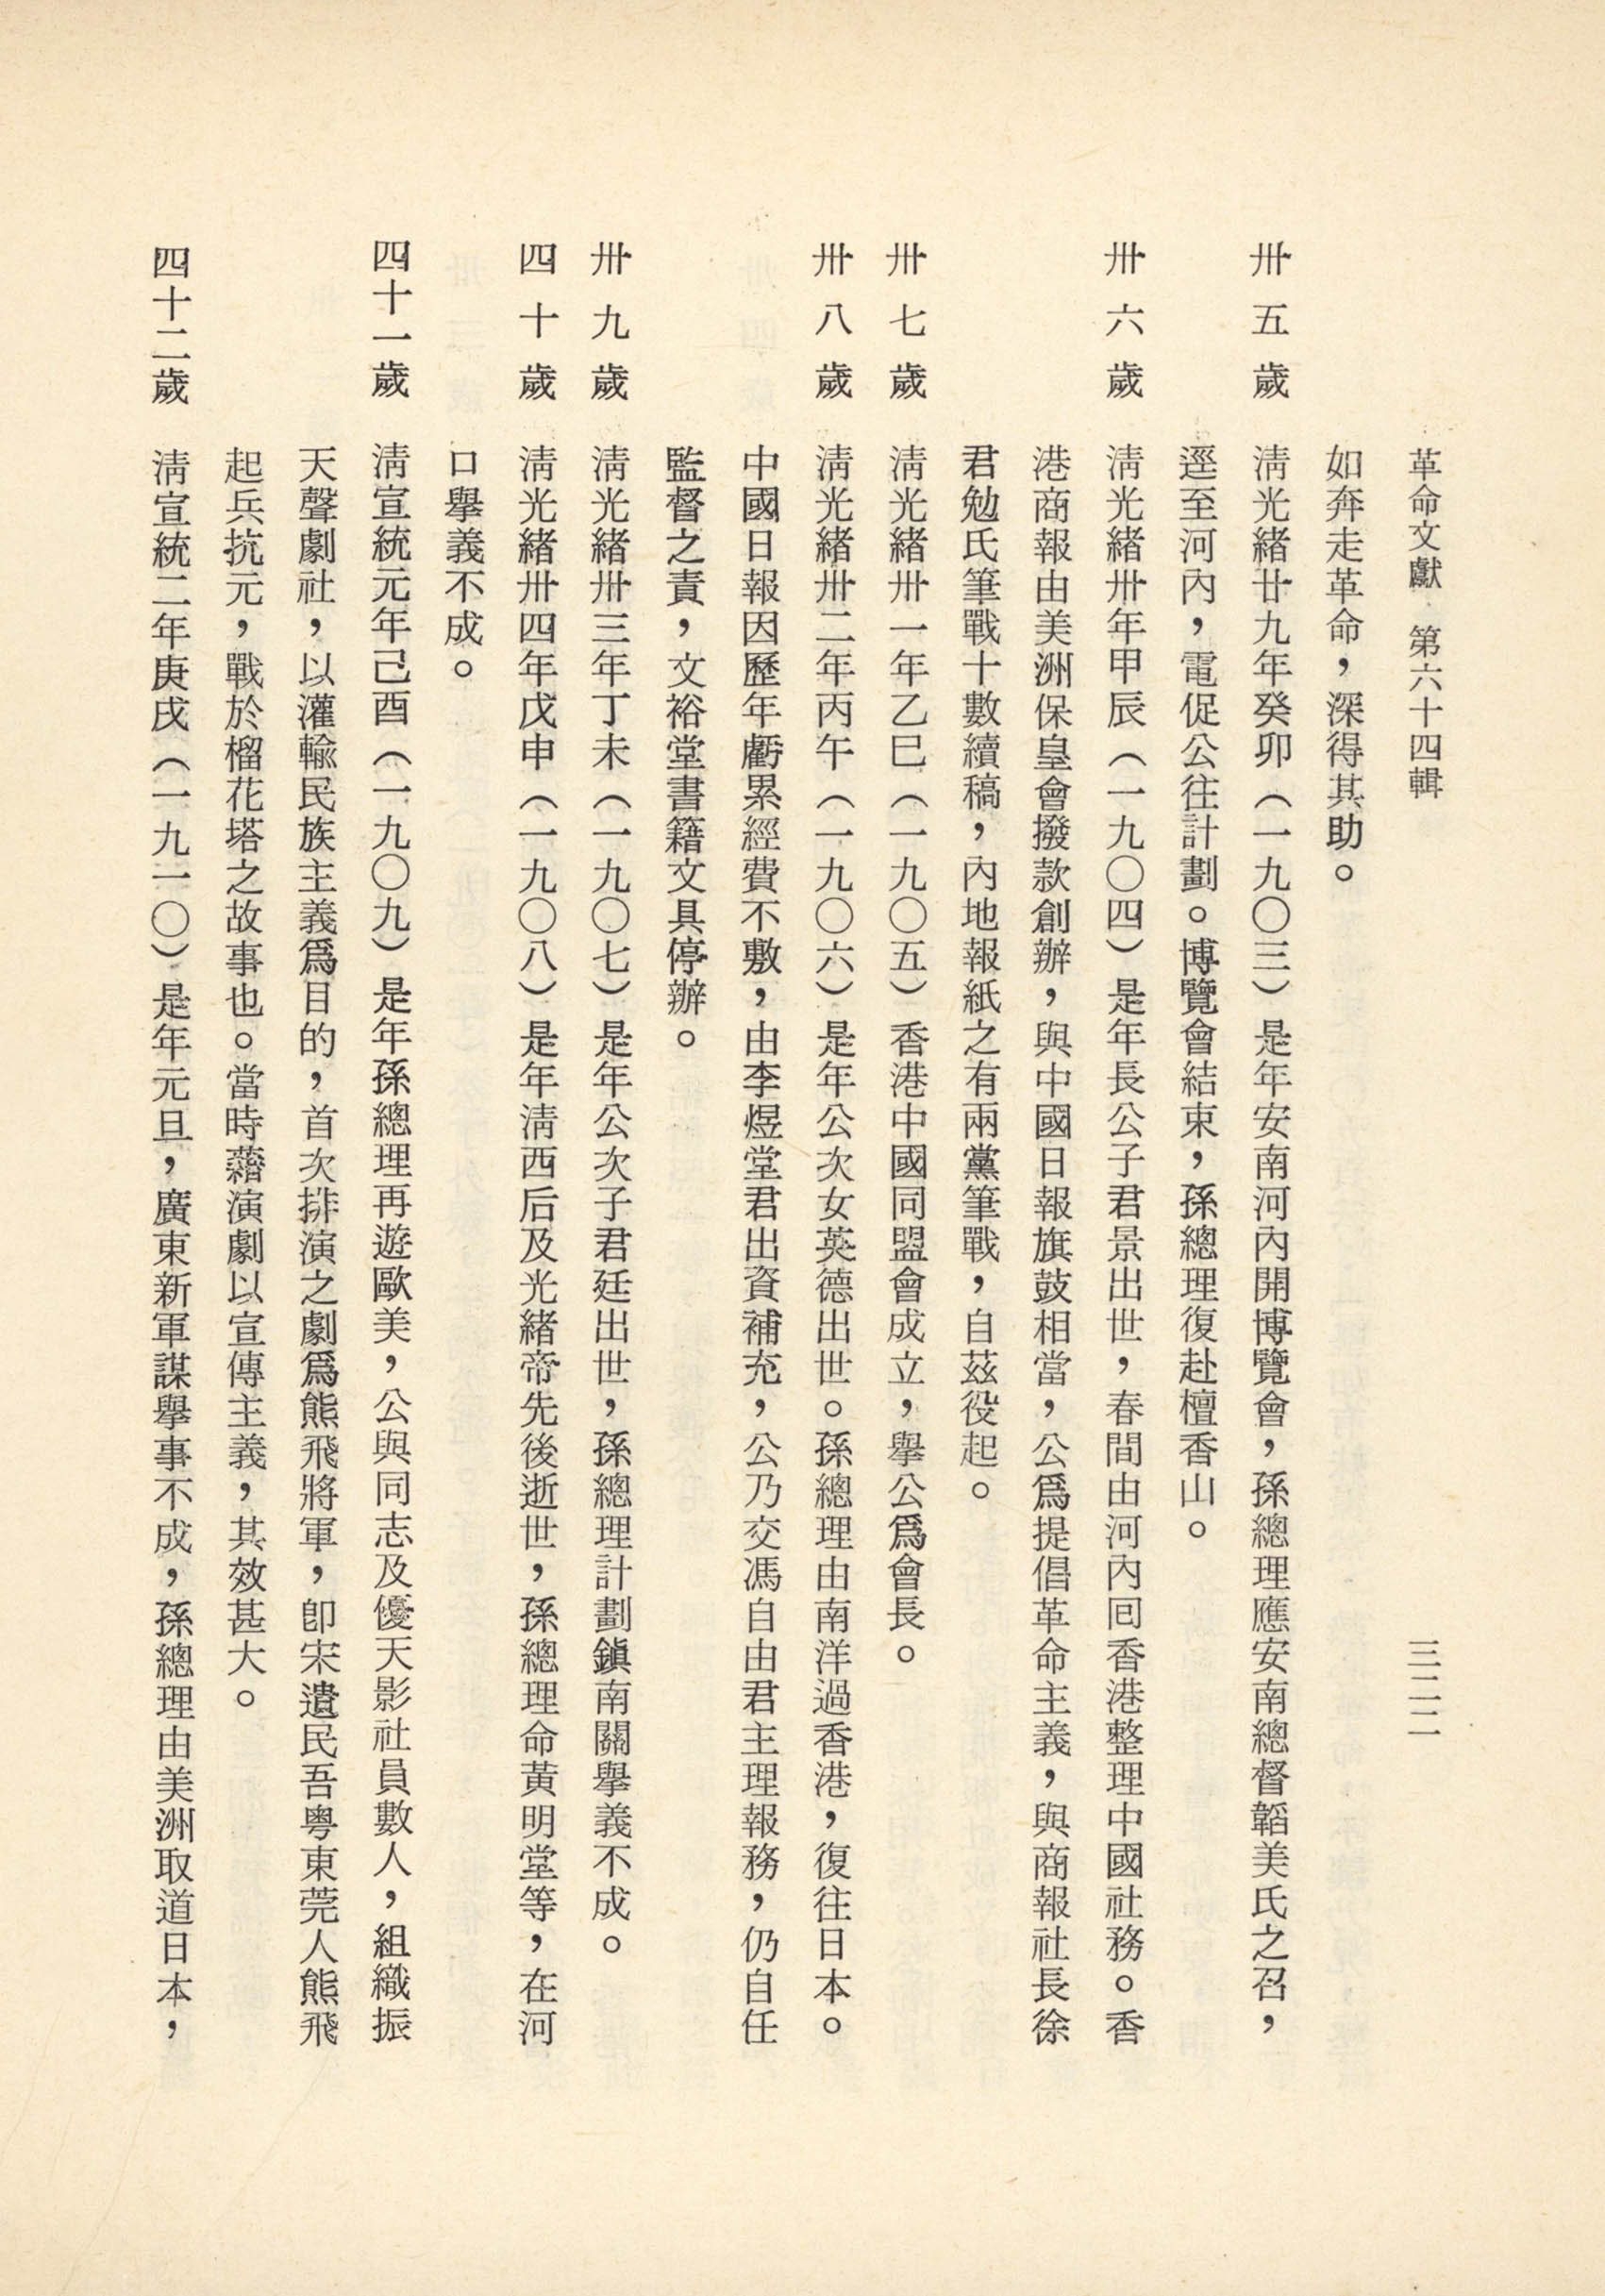 革命文獻 第六十四輯 三二二
如奔走革命，深得其助。
卅五歲 淸光緒廿九年癸卯（一九〇三）是年安南河內開博覽會，孫總理應安南總督韜美氏之召，
逕至河內，電促公往計劃。博覽會結束，孫總理復赴檀香山。
卅六歲 淸光緒卅年甲辰（一九〇四）是年長公子君景出世，春間由河內囘香港整理中國社務。香
港商報由美洲保皇會撥款創辦，與中國日報旗鼓相當，公爲提倡革命主義，與商報社長徐
君勉氏筆戰十數續稿，內地報紙之有兩黨筆戰，自茲役起。
卅七歲 淸光緒卅一年乙巳（一九〇五）香港中國同盟會成立，舉公爲會長。
卅八歲 淸光緒卅二年丙午（一九〇六）是年公次女英德出世。孫總理由南洋過香港，復往日本。
中國日報因歷年虧累經費不敷，由李煜堂君出資補充，公乃交馮自由君主理報務，仍自任
監督之責，文裕堂書籍文具停辦。
卅九歲 淸光緒卅三年丁未（一九〇七）是年公次子君廷出世，孫總理計劃鎭南關舉義不成。
四十歲 淸光緒卅四年戊申（一九〇八）是年淸西后及光緒帝先後逝世，孫總理命黃明堂等，在河
口舉義不成。
四十一歲 淸宣統元年己酉（一九〇九）是年孫總理再遊歐美，公與同志及優天影社員數人，組織振
天聲劇社，以灌輸民族主義爲目的，首次排演之劇爲熊飛將軍，卽宋遺民吾粵東莞人熊飛
起兵抗元，戰於榴花塔之故事也。當時藉演劇以宣傳主義，其效甚大。
四十二歲 淸宣統二年庚戌（一九一〇）是年元旦，廣東新軍謀舉事不成，孫總理由美洲取道日本，